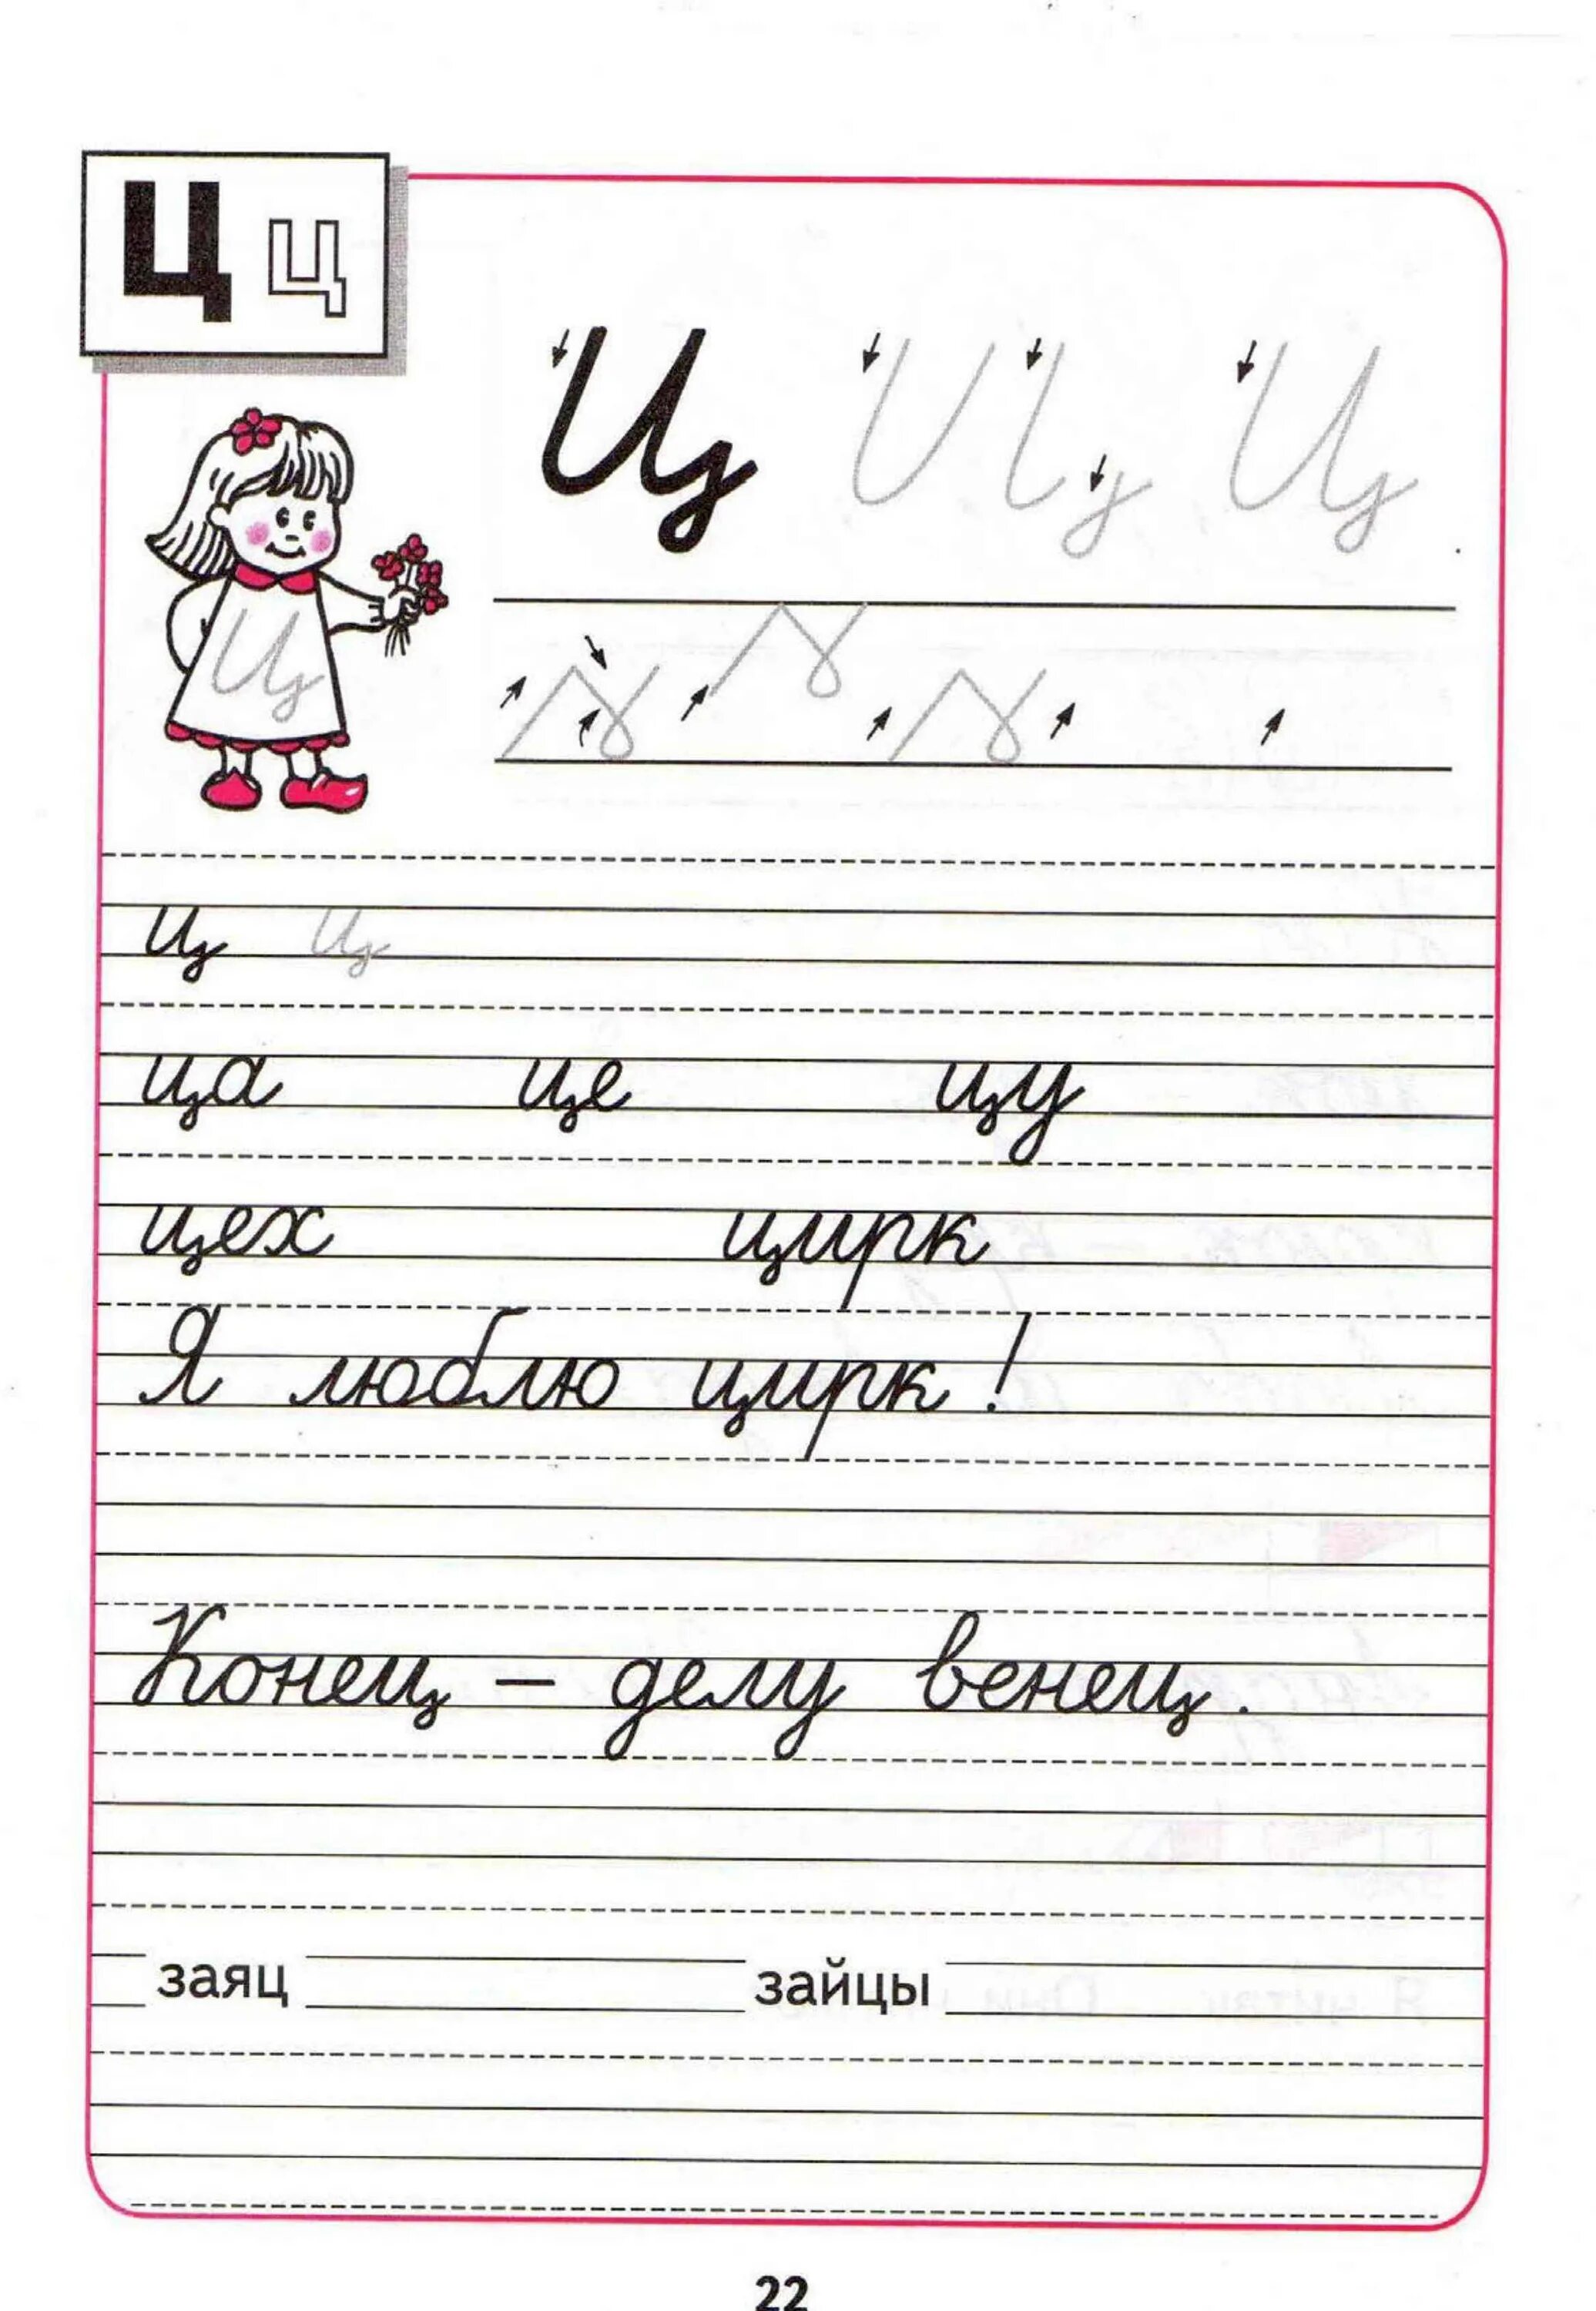 Ц ц
ц ц ц ц ц
ц
ц ц
ца це цу
цех цирк
Я люблю цирк!
Конец – делу венец.
заяц зайцы
22